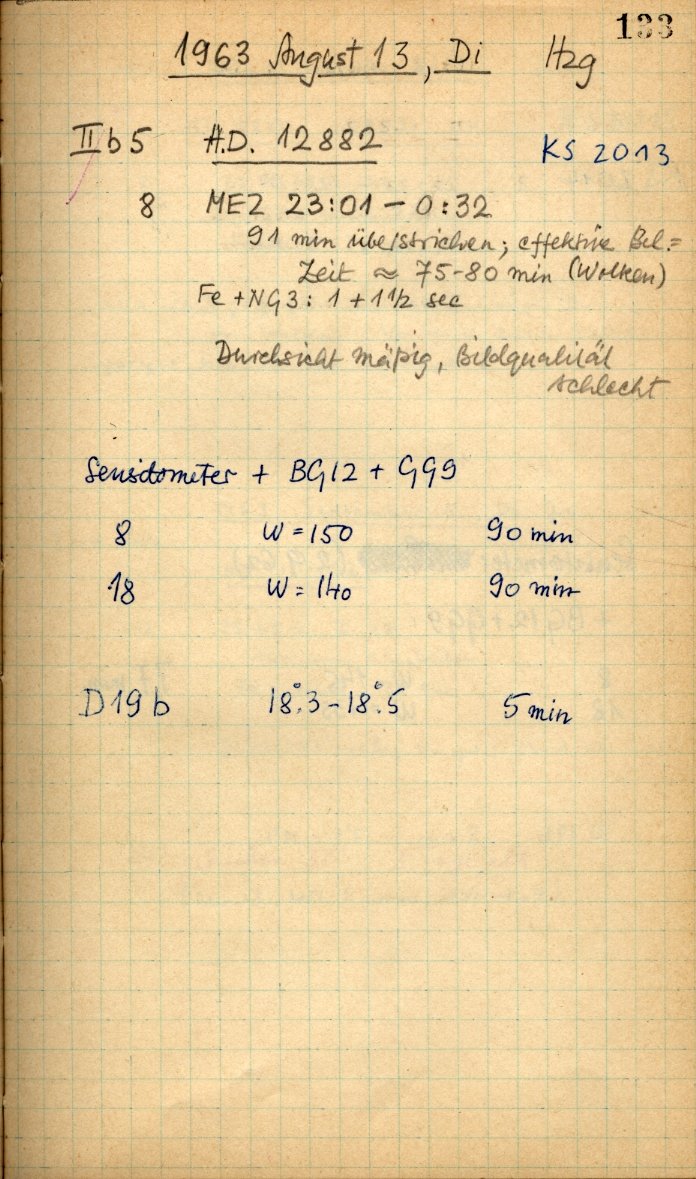 133
1963 August 13, Di Hzg
II b 5 H.D. 12882 KS 2013
8 MEZ 23:01 – 0:32
91 min überstrichen; effektive Bel.=
Zeit ≈ 75-80 min (Wolken)
Fe + NG3: 1 + 1 1/2 sec
Durchsicht mäßig, Bildqualität
schlecht
Sensitometer + BG12 + GG9
8 W = 150 90 min
18 W = 140 90 min
D19b 18°.3 – 18°.5 5 min